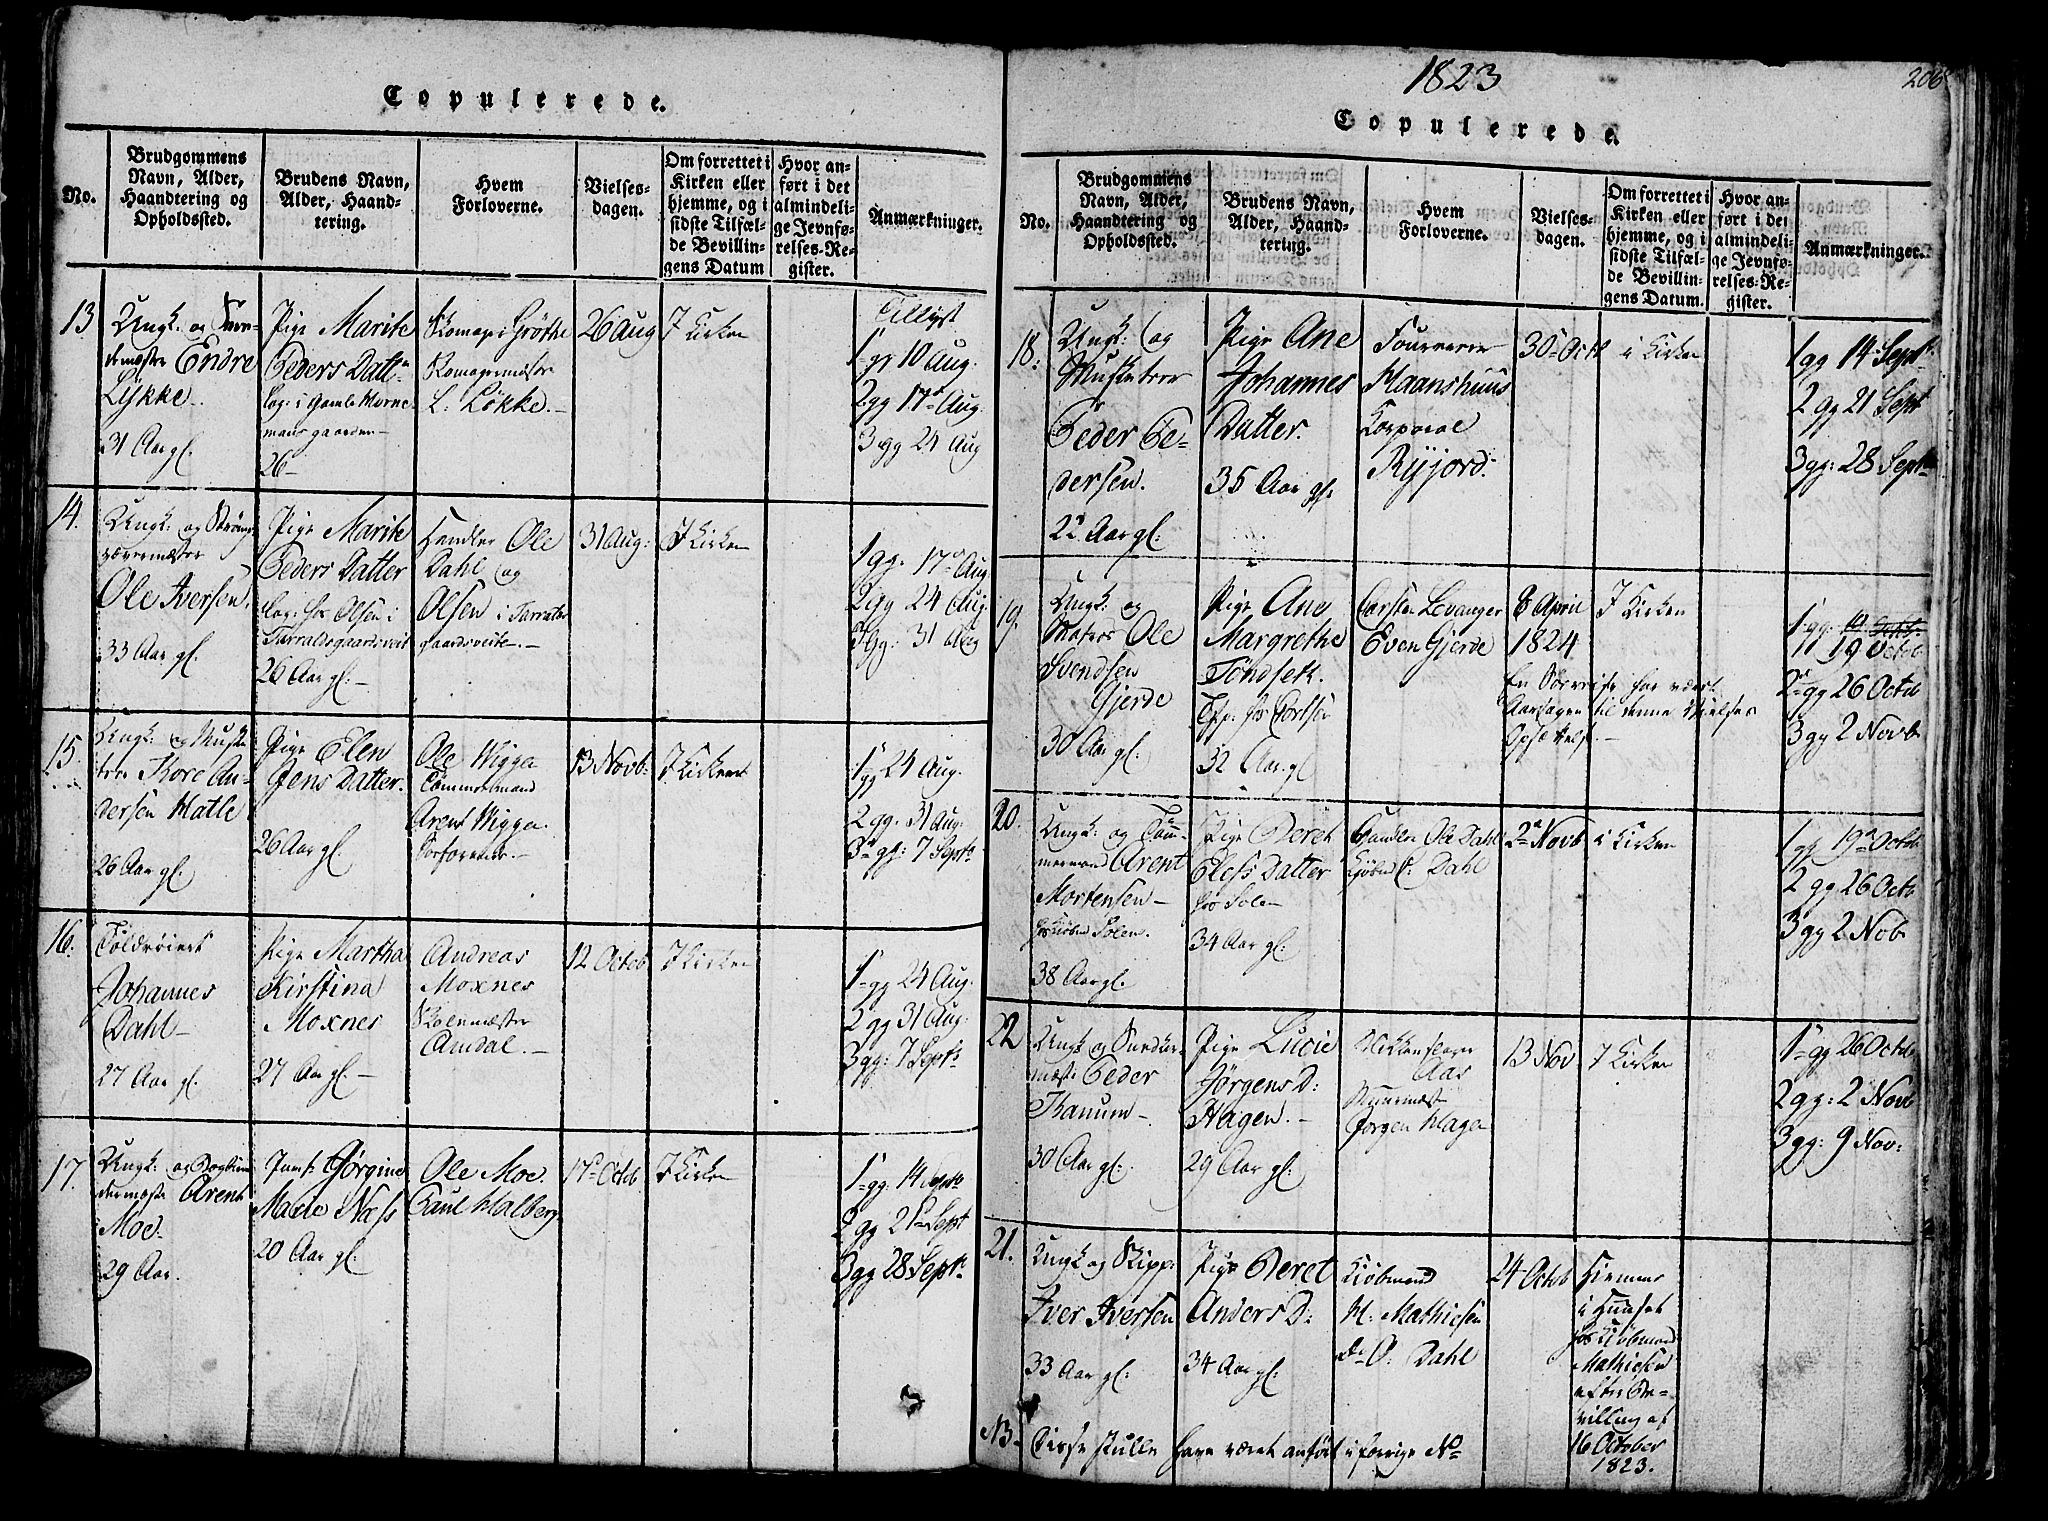 Copulerede.
No.
Brudgommens
Navn, Alder,
Haandtering og
Opholdssted.
Brudens Navn,
Alder, Haand-
tering.
Hvem
Forloverne.
Vielses-
dagen.
Om forrettet i
Kirken eller
hjemme, og i
sidste Tilfæl-
de Bevillin-
gens Datum
Hvor an-
ført i det
almindeli-
ge Jevnfø-
relses-Re-
gister.
Anmærkninger.
13
Ungk: og
Endre
Lykke
31 Aar gl.
Pige Marite
Peders Datt
log: i Gamle Horne-
mans gaarden
26
Grøthe
L: Løkke.
26 Aug
I Kirken
Tillyst
1 gg 10 Aug.
2 gg 17 Aug.
3 gg 24 Aug
14.
Ungk: og
Ole Iversen.
33 Aar gl.
Pige Marite
Peders Datter
log: hos Olsen i
26 Aar gl.
Handler Ole
Dahl og
Olsen i
31 Aug:
I Kirken
1 gg. 17 Aug
2 gg 24 Aug.
3 gg: 31 Aug
15.
Ungk: og Muske
teer Tore An-
dersen Hatle
26 Aar gl.
Pige Elen
Jens Datter.
26 Aar gl.
Ole Wigga
Tømmermand
Arent Wigga
13 Novb:
I Kirken
1 gg 24 Aug.
2 gg. 31 Aug:
3 gg: 7 Septb
16.
Johannes
Dahl
27 Aar gl.
Pige Martha
Kirstina
Moxnes
27 Aar gl.
Andreas
Moxnes
Amdal.
12 Octob
I Kirken
1 gg 24 Aug.
2 gg 31 Aug:
3 gg: 7 Septb
17.
Ungk: og Bogbin
dermester Arent
Moe
29 Aar.
Jomf: Jørgine
Marie Næss
20 Aar gl:
Ole Moe.
Paul Halberg
17 Octob
I Kirken
1 gg. 14 Septb
2 gg 21 Sept
3 gg 28 Septb.
1823
206
Copulerede.
No.
Brudgommens
Navn, Alder,
Haandtering og
Opholdssted.
Brudens Navn,
Alder, Haand-
tering.
Hvem
Forloverne.
Vielses-
dagen.
Om forrettet i
Kirken eller
hjemme, og i
sidste Tilfæl-
de Bevillin-
gens Datum.
Hvor an-
ført i det
almindeli-
ge Jevnfø-
relses-Re-
gister.
Anmærkninger.
18.
Ungk: og
Musketeer
Peder Pe-
dersen.
22 Aar gl.
Pige Ane
Johannes
Datter.
35 Aar gl.
Fourneer
Haanshuus
Corporal
Ryjord.
30 Octb
i Kirken
1 gg 14 Septb.
2 gg 21 Sept
3 gg: 28 Septb
19.
Ungk: og
Matros Ole
Svendsen
Gjerde
30 Aar gl.
Pige Ane
Margrethe
Tøndseth.
32 Aar. gl
Carsten Levanger
Even Gjerde
8 April
1824.
En Søereise har været
Aarsagen til denne Vielses
Opsættelse.
I Kirken
1 gg:
19 Octob
2 gg 26 Octob
3 gg 2 Novb
20.
Ungk: og Tøm-
mermand Arent
Mortensen
38 Aar gl.
Pige Beret
Oless Datter
34 Aar gl:
Handler Ole Dahl
Dahl
2 Novb
i Kirken
1 gg 19 Octob
2 gg 26 Octob
3 gg 2 Nob
22
Ungk og Snedker
mest: Peder
Thanum
30 Aar gl:
Pige Lucie
Jørgens D:
Hagen.
29 Aar gl:
Aas
Jørgen Hagen
13 Nov
I Kirken
1 gg 26 Octob
2 gg: 2 Novb
3 gg: 9 Nov:
21.
Ungk og Skipp:
Iver Iversen
33 Aar gl:
Pige Beret
Anders D:
34 Aar gl:
Kiøbmand
H. Mathiesen
do O: Dahl
24 Octob
Hiemme
i Huuset
hos Kiøbmand
Mathiesen
efter Be-
villing af
16 October
1823.
NB. Disse skulle have været anført i forrige No